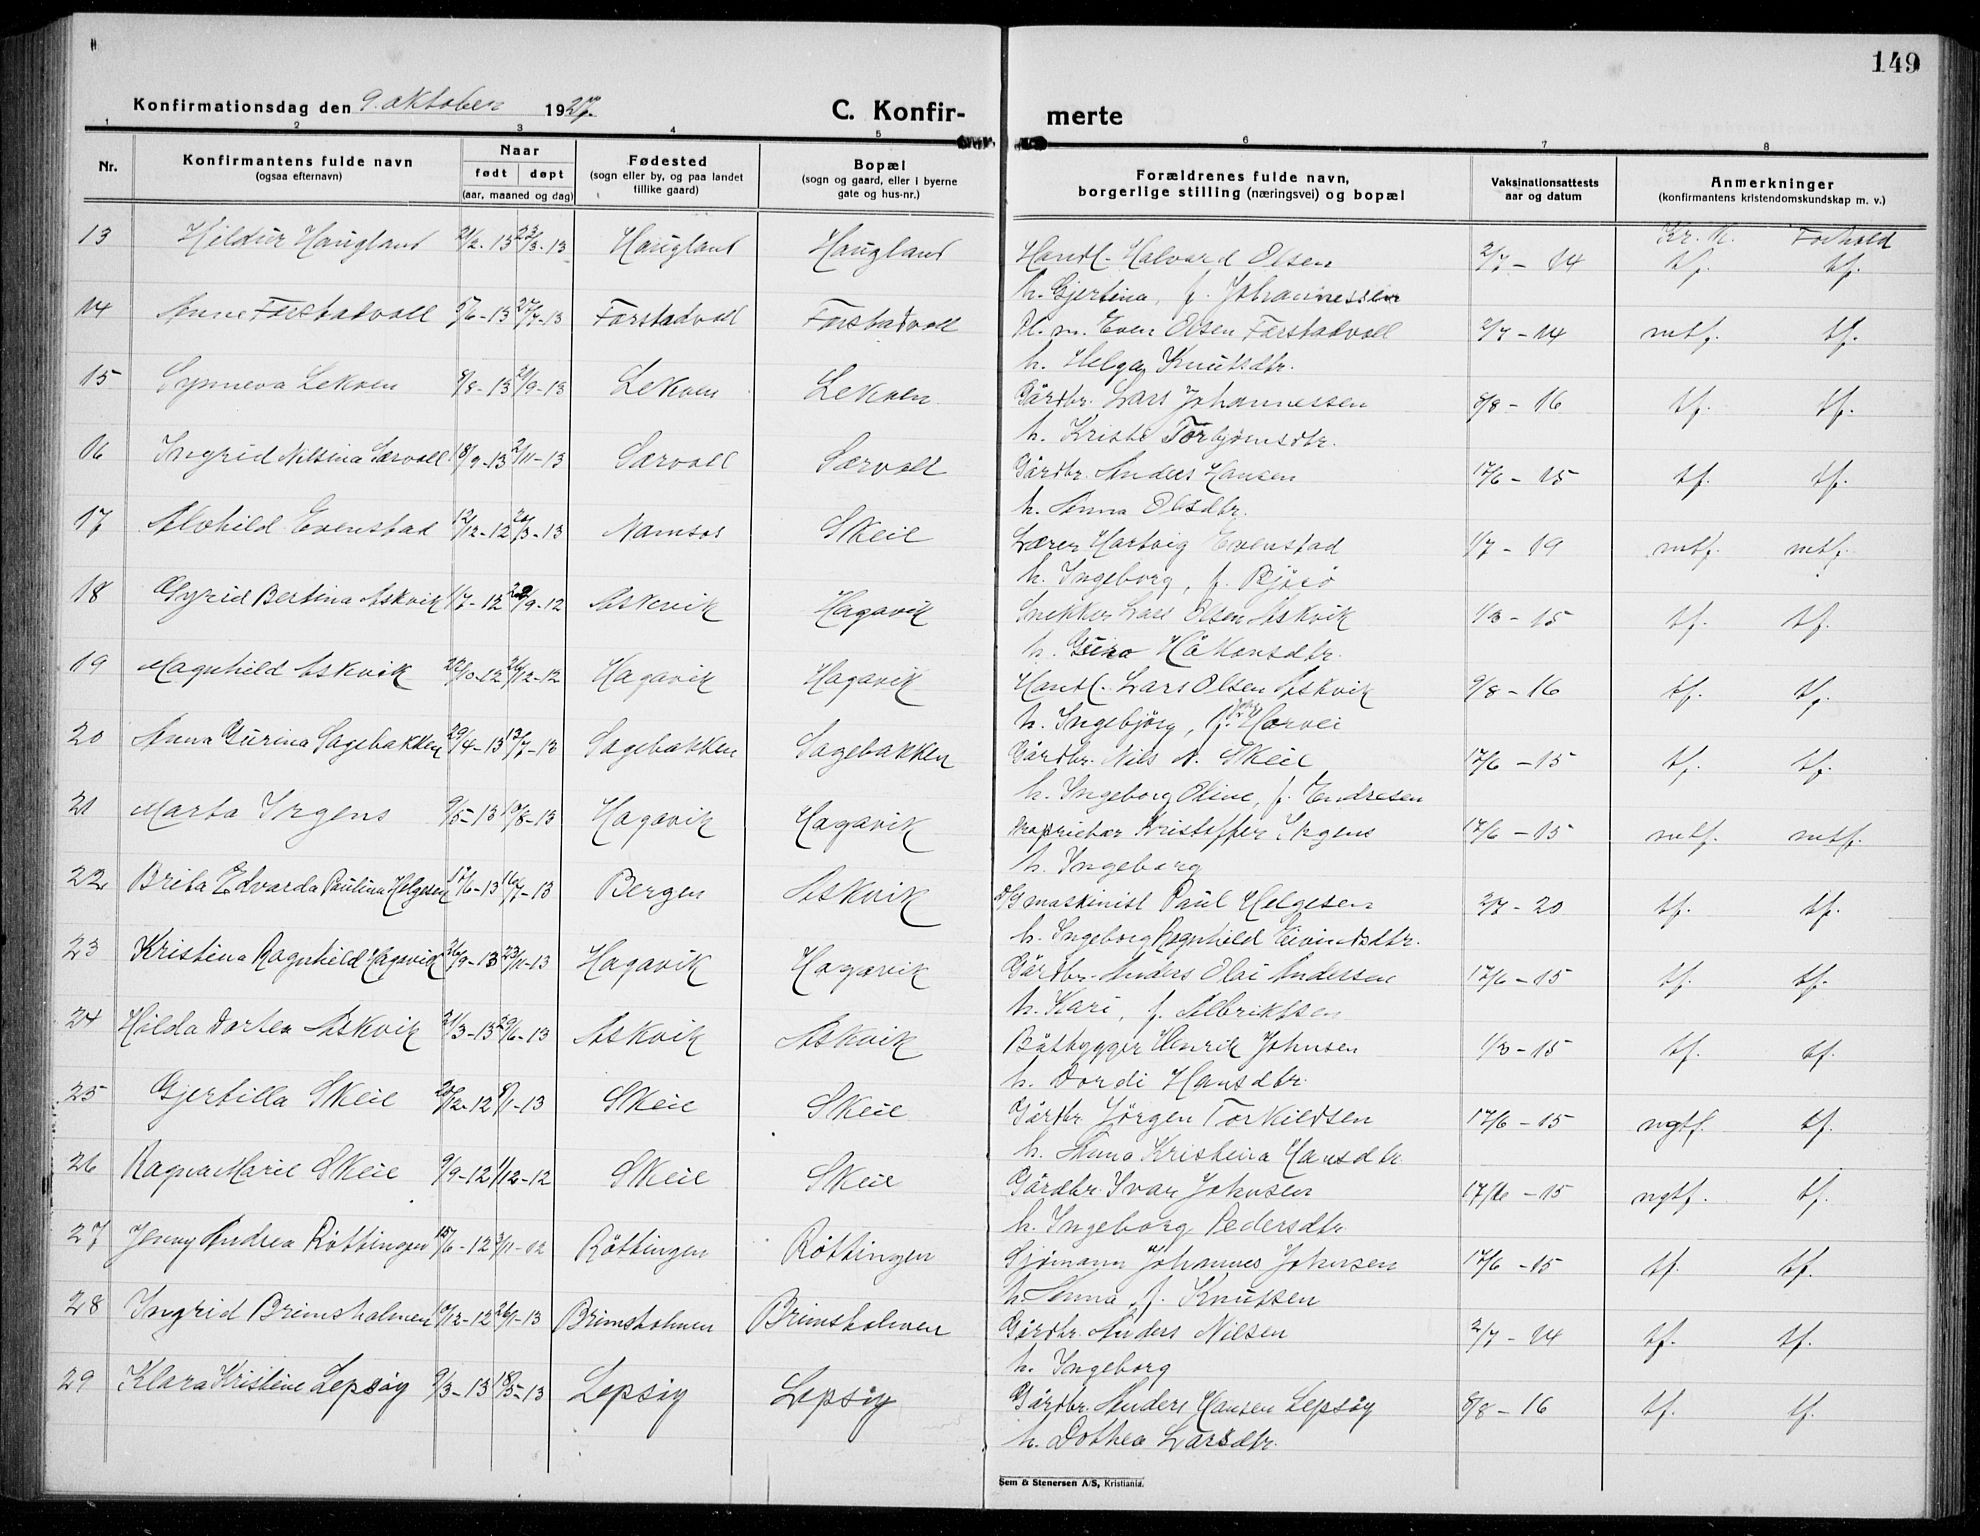 149
Konfirmationsdag den 9. oktober 1927.
C. Konfir- merte
1 2 3 4 5 6 7 8
Nr.
Konfirmantens fulde navn
(ogsaa efternavn)
Naar
født døpt
(aar, maaned og dag)
Fødested
(sogn eller by, og paa landet
tillike gaard)
Bopæl
(sogn og gaard, eller i byerne
gate og hus-nr.)
Forældrenes fulde navn,
borgerlige stilling (næringsvei) og bopæl
Vaksinationsattests
aar og datum
Anmerkninger
(konfirmantens kristendomskundskap m. v.)
Kr. K. Forhold
13 Hildur Haugland 21/2-13 23/3-13 Haugland Haugland Handl. Halvard Olsen 2/7-14 tf. tf.
h. Gjertina, f. Johannessen
14 Anne Førstadvoll 5/6-13 27/7-13 Førstadvoll Førstadvoll Pl. m. Even Olsen Førstadvoll 2/7-14 mtf. tf.
h. Helga Knutsdtr.
15 Synneva Lekven 8/8-13 21/9-13 Lekven Lekven Gårdbr. Lars Johannessen 8/8-16 tf. tf.
h. Kristi Torbjørnsdtr.
16 Ingrid Nilsina Særvoll 18/9-13 2/11-13 Særvoll Særvoll Gårdbr. Anders Hansen 17/6-15 tf. tf.
h. Anna Olsdtr.
17 Alvhild Evenstad 12/12-12 20/3-13 Namsos Skeie Lærer Hartvig Evenstad 1/7-19 mtf. mtf.
h. Ingeborg, f. Bjørø
18 Gyrid Bertina Askvik 1/7-12 22/9-12 Askvik Hagavik Snekker Lars Olsen Askvik 1/3-15 tf. tf.
h. Guro Håkonsdtr.
19 Magnhild Askvik 22/10-12 26/12-12 Hagavik Hagavik Handl. Lars Olsen Askvik 9/8-16 tf. tf.
h. Ingebjørg, f. Hørvei
20 Anna Gurina Sagebakken 29/4-13 13/7-13 Sagebakken Sagebakken Gårdbr. Nils N. Skeie 17/6-15 tf. tf.
h. Ingeborg Oline, f. Endresen
21 Marta Irgens 9/5-13 10/8-13 Hagavik Hagavik Proprietær Kristoffer Irgens 17/6-15 mtf. mtf.
h. Ingeborg
22 Brita Edvarda Paulina Helgesen 17/6-13 16/7-13 Bergen Askvik D/S maskinist Paul Helgesen 2/7-20 tf. tf.
h. Ingeborg Ragnhild Eivindsdtr.
23 Kristina Ragnhild Hagavik 26/9-13 23/11-13 Hagavik Hagavik Gårdbr. Anders Olai Andersen 17/6-15 tf. tf.
h. Kari, f. Albriktsen
24 Hilda Dortea Askvik 21/3-13 29/6-13 Askvik Askvik Båtbygger Henrik Johnsen 1/3-15 tf. tf.
h. Dordi Hansdtr.
25 Gjertilla Skeie 20/12-12 9/1-13 Skeie Skeie Gårdbr. Jørgen Torkildsen 17/6-15 ngtf. tf.
h. Anna Kristina Hansdtr.
26 Ragna Marie Skeie 9/9-12 1/12-12 Skeie Skeie Gårdbr. Ivar Johnsen 17/6-15 ngtf. tf.
h. Ingeborg Pedersdtr.
27 Jenny Andrea Røttingen 15/6-12 3/11-12 Røttingen Røttingen Sjømann Johannes Johnsen 17/6-15 tf. tf.
h. Anna, f. Knutsen
28 Ingrid Brimsholmen 10/12-12 26/1-13 Brimsholmen Brimsholmen Gårdbr. Anders Nilsen 2/7-14 tf. tf.
h. Ingeborg
29 Klara Kristine Lepsøy 9/3-13 18/5-13 Lepsøy Lepsøy Gårdbr. Anders Hansen Lepsøy 8/8-16 tf. tf.
h. Dothea Larsdtr.
Sem & Stenersen A/S, Kristiania.